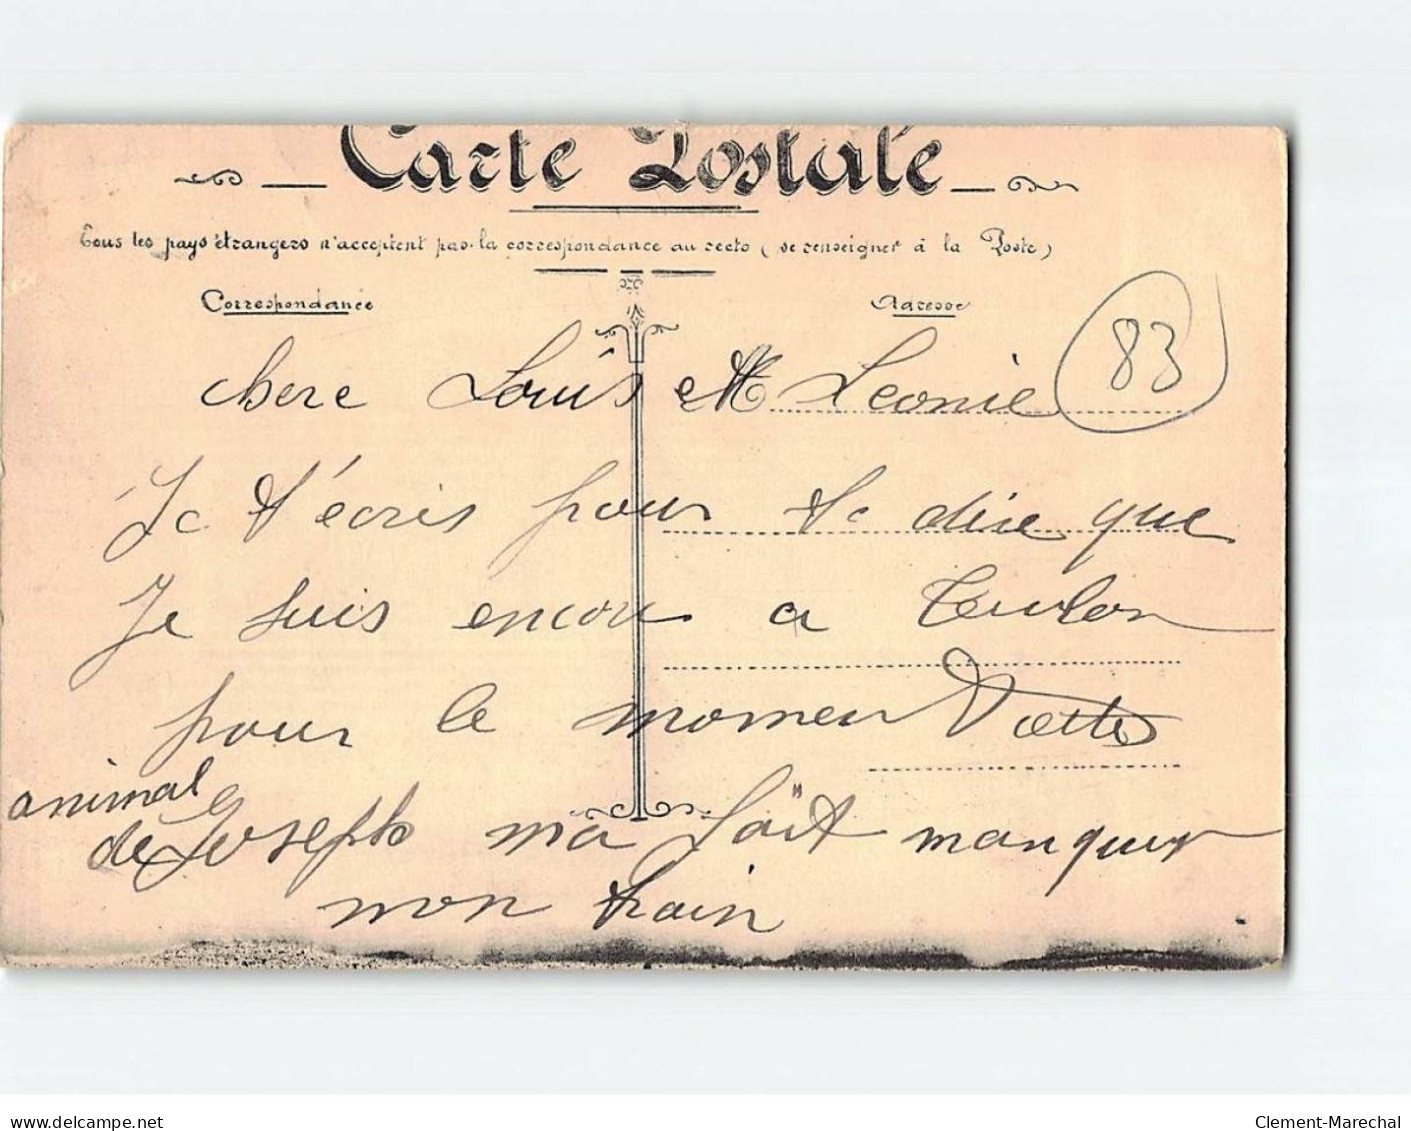 Carte Postale
Tous les pays étrangers n'acceptent pas la correspondance au recto (se renseigner à la Poste)
Correspondance
Adresse
83
chere Louis et Leonie
Je t'écris pour te dire que
Je suis encore a Toulon
pour le momen
animal
de Joseph ma fait manquer
mon train
www.delcampe.net
Clement-Marechal